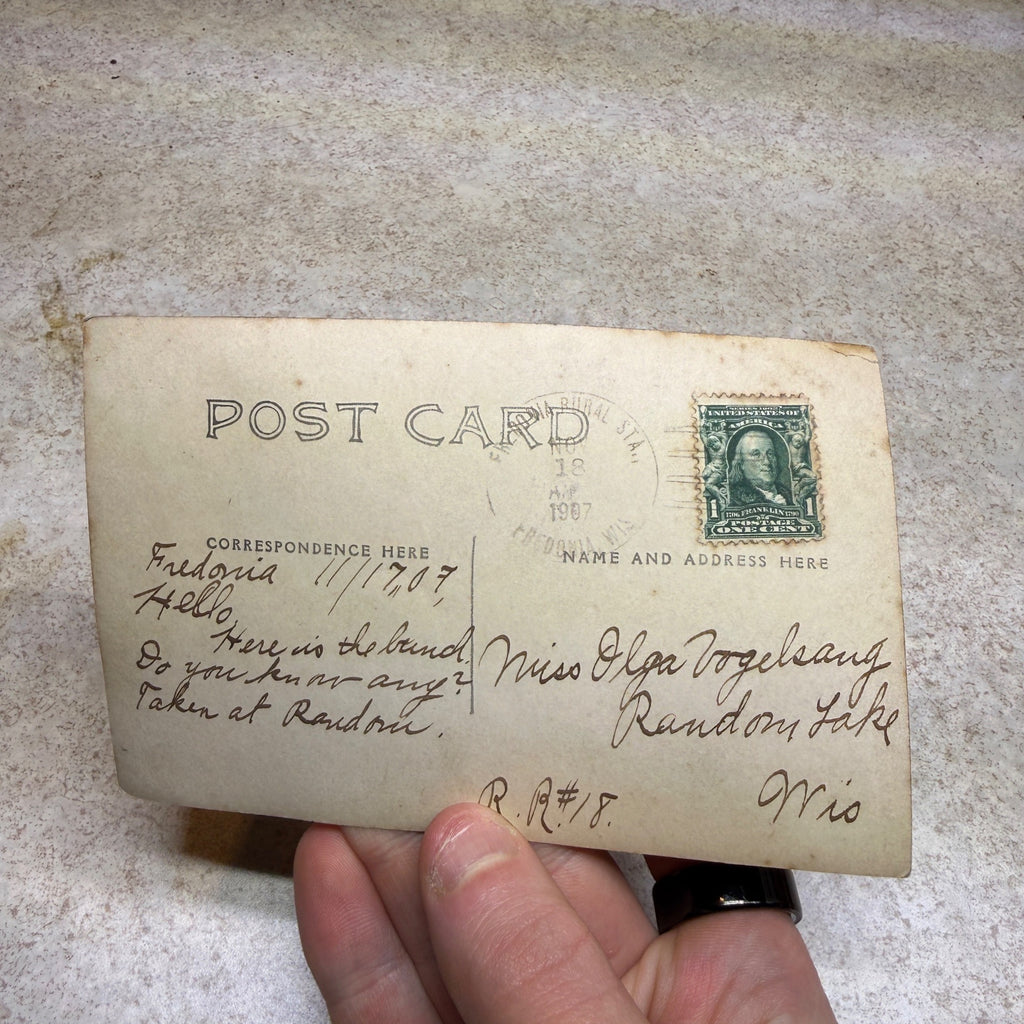 POST CARD
RURAL STA.
NO
18
AM
1907
FREDONIA, WIS
SERIES 1902
UNITED STATES OF
AMERICA
1706 FRANKLIN 1790
1 1
POSTAGE
ONE CENT
CORRESPONDENCE HERE
NAME AND ADDRESS HERE
Fredonia 11/17,,07,
Hello,
Here is the bunch.
Do you know any?
Taken at Random.
Miss Olga Vogelsang
Random Lake
Wis
R.R.#18.